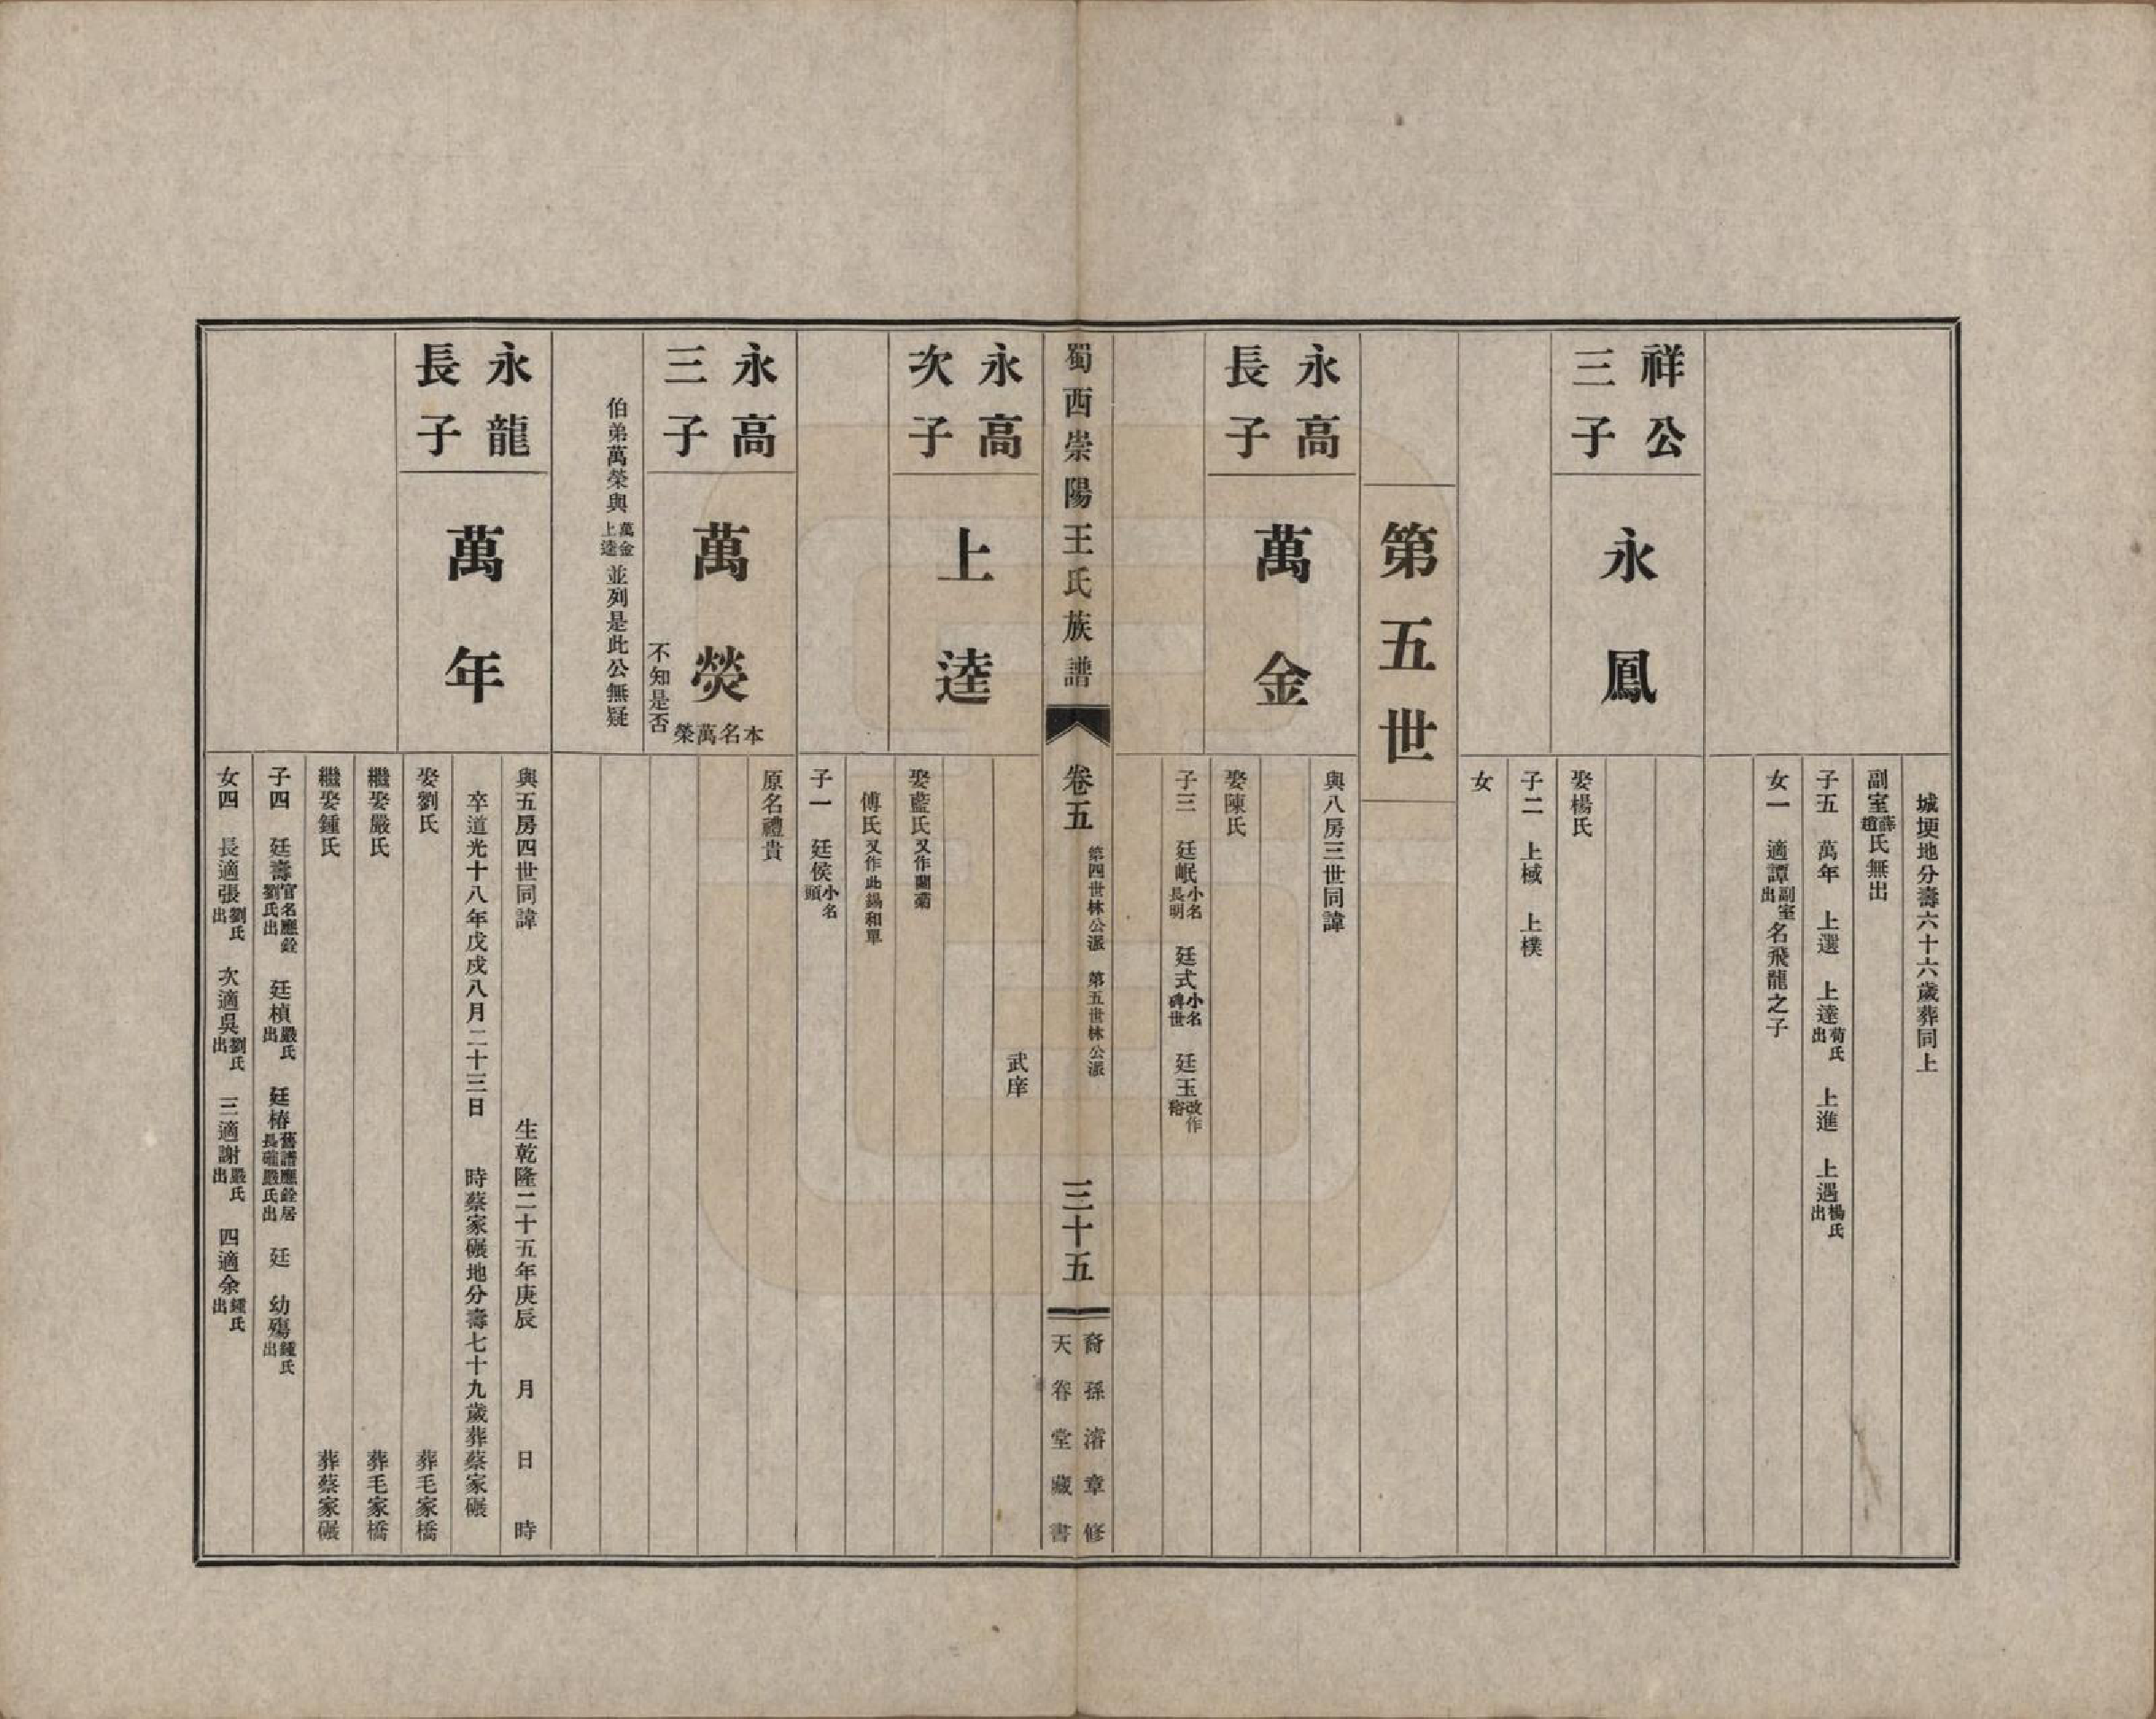 城埂地分壽六十六歲葬同上
副室薛趙氏無出
子五 萬年 上選 上逵荀氏出 上進 上遇楊氏出
女一 適譚副室出名飛龍之子
祥公三子
永鳳
娶楊氏
子二 上棫 上樸
女
第五世
永高長子
萬金
與八房三世同諱
娶陳氏
子三 廷岷小名長明 廷式小名碑世 廷玉改作裕
蜀西崇陽王氏族譜
卷五
第四世林公派 第五世林公派
三十五
裔孫濬章修
天眷堂藏書
永高次子
上逵
武庠
娶藍氏又作蘭菊
傅氏又作此錫和單
子一 廷侯小名頭
永高三子
萬熒
本名萬榮
不知是否
伯弟萬榮與萬金上逵並列是此公無疑
原名禮貴
永龍長子
萬年
與五房四世同諱 生乾隆二十五年庚辰 月 日 時
卒道光十八年戊戌八月二十三日 時蔡家碾地分壽七十九歲葬蔡家碾
娶劉氏 葬毛家橋
繼娶嚴氏 葬毛家橋
繼娶鍾氏 葬蔡家碾
子四 廷壽官名應銓劉氏出 廷楨嚴氏出 廷椿舊譜應銓居長確嚴氏出 廷 幼殤鍾氏出
女四 長適張劉氏出 次適吳劉氏出 三適謝嚴氏出 四適余鍾氏出